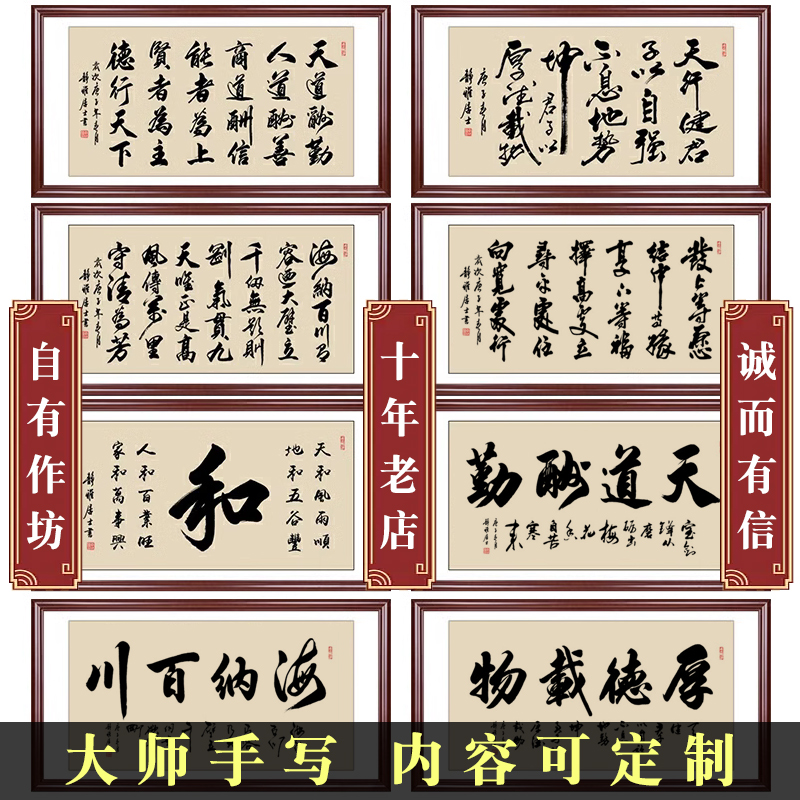 天道酬勤
人道酬善
商道酬信
能者為上
賢者為主
德行天下
歲次庚子年春月
靜雅居士書
天行健君
子以自强
不息地勢
坤君子以
厚德載物
庚子春月
靜雅居士
海納百川有
容迺大壁立
千仞無欲則
剛氣貫九
天唯正是高
風傳萬里
守清為芳
歲次庚子年春月
靜雅居士書
發上等愿
結中等緣
享下等福
擇高處立
尋平處住
向寬處行
歲次庚子年春月
靜雅居士書
天和風雨順
地和五谷豐
和
人和百業旺
家和萬事興
靜雅居士書
天道酬勤
寶劍
鋒從
磨
礪出
梅
花
香
自苦
寒
來
庚子春月
靜雅居士
海納百川
厚德載物
自有作坊
十年老店
诚而有信
大师手写 内容可定制